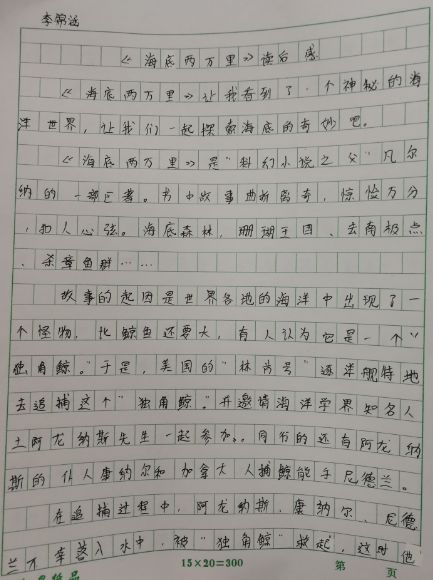 李锦涵
《海底两万里》读后感
《海底两万里》让我看到了一个神秘的海
洋世界，让我们一起探索海底的奇妙吧。
《海底两万里》是"科幻小说之父"凡尔
纳的一部巨著。书中故事曲折离奇，惊险万分
，扣人心弦。海底森林，珊瑚王国、去南极点
、杀章鱼群……
故事的起因是世界各地的海洋中出现了一
个怪物，比鲸鱼还要大，有人认为它是一个"
独角鲸。"于是，美国的"林肯号"远洋舰特地
去追捕这个"独角鲸。"并邀请海洋学界知名人
士阿龙纳斯先生一起参加。同行的还有阿龙纳
斯的仆人康纳尔和加拿大人捕鲸能手尼德兰。
在追捕过程中，阿龙纳斯、康纳尔、尼德
兰不幸落入水中，被"独角鲸"救起，这时他
15×20=300
第 页